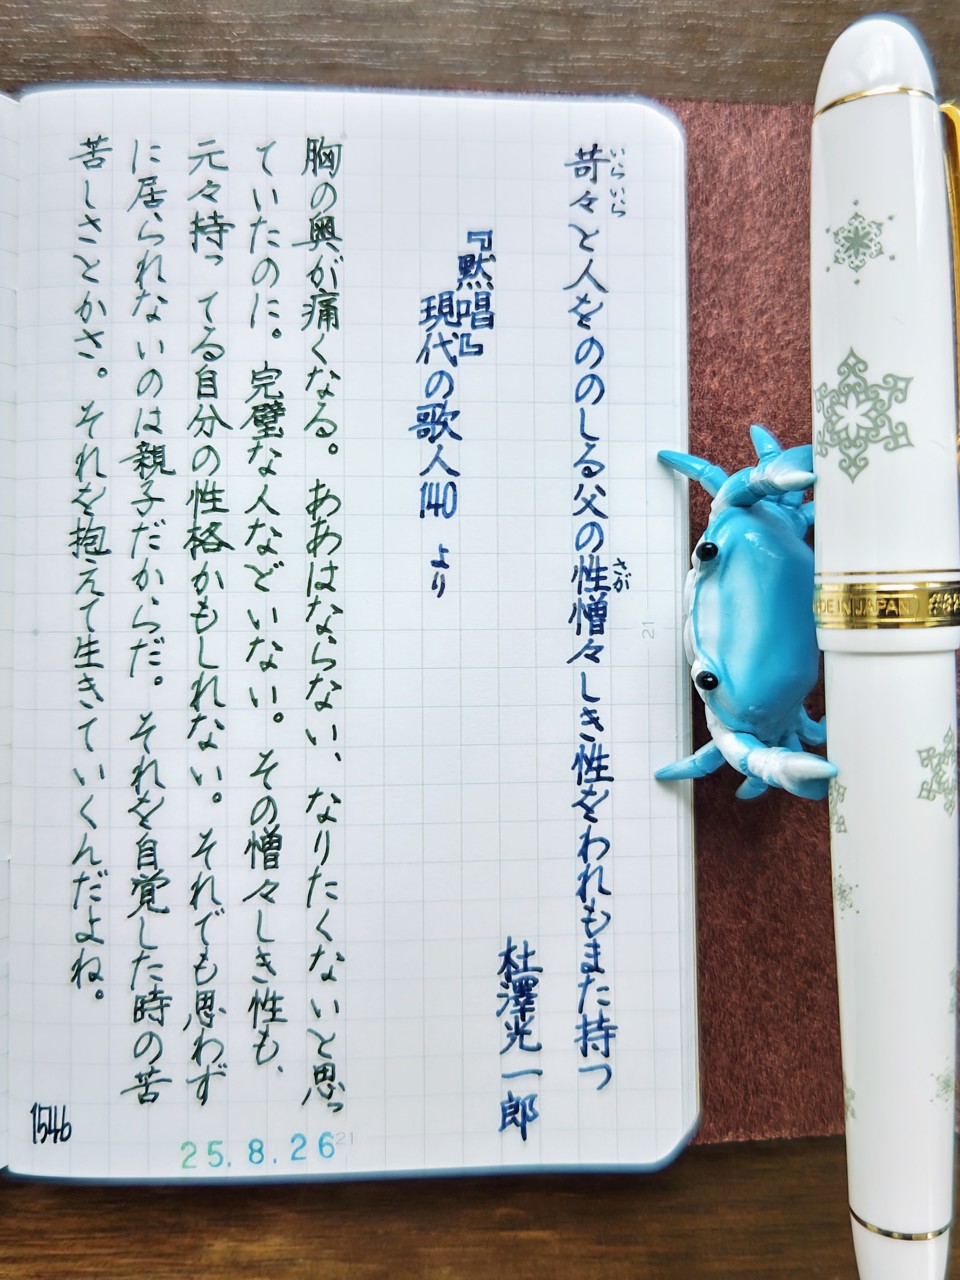 苛々と人をののしる父の性憎々しき性をわれもまた持つ
いらいら
さが
杜澤光一郎
『黙唱』
現代の歌人140 より
胸の奥が痛くなる。ああはならない、なりたくないと思っ
ていたのに。完璧な人などいない。その憎々しき性も、
元々持ってる自分の性格かもしれない。それでも思わず
に居られないのは親子だからだ。それを自覚した時の苦
苦しさとかさ。それを抱えて生きていくんだよね。
1546
25.8.26
21
21
MADE IN JAPAN